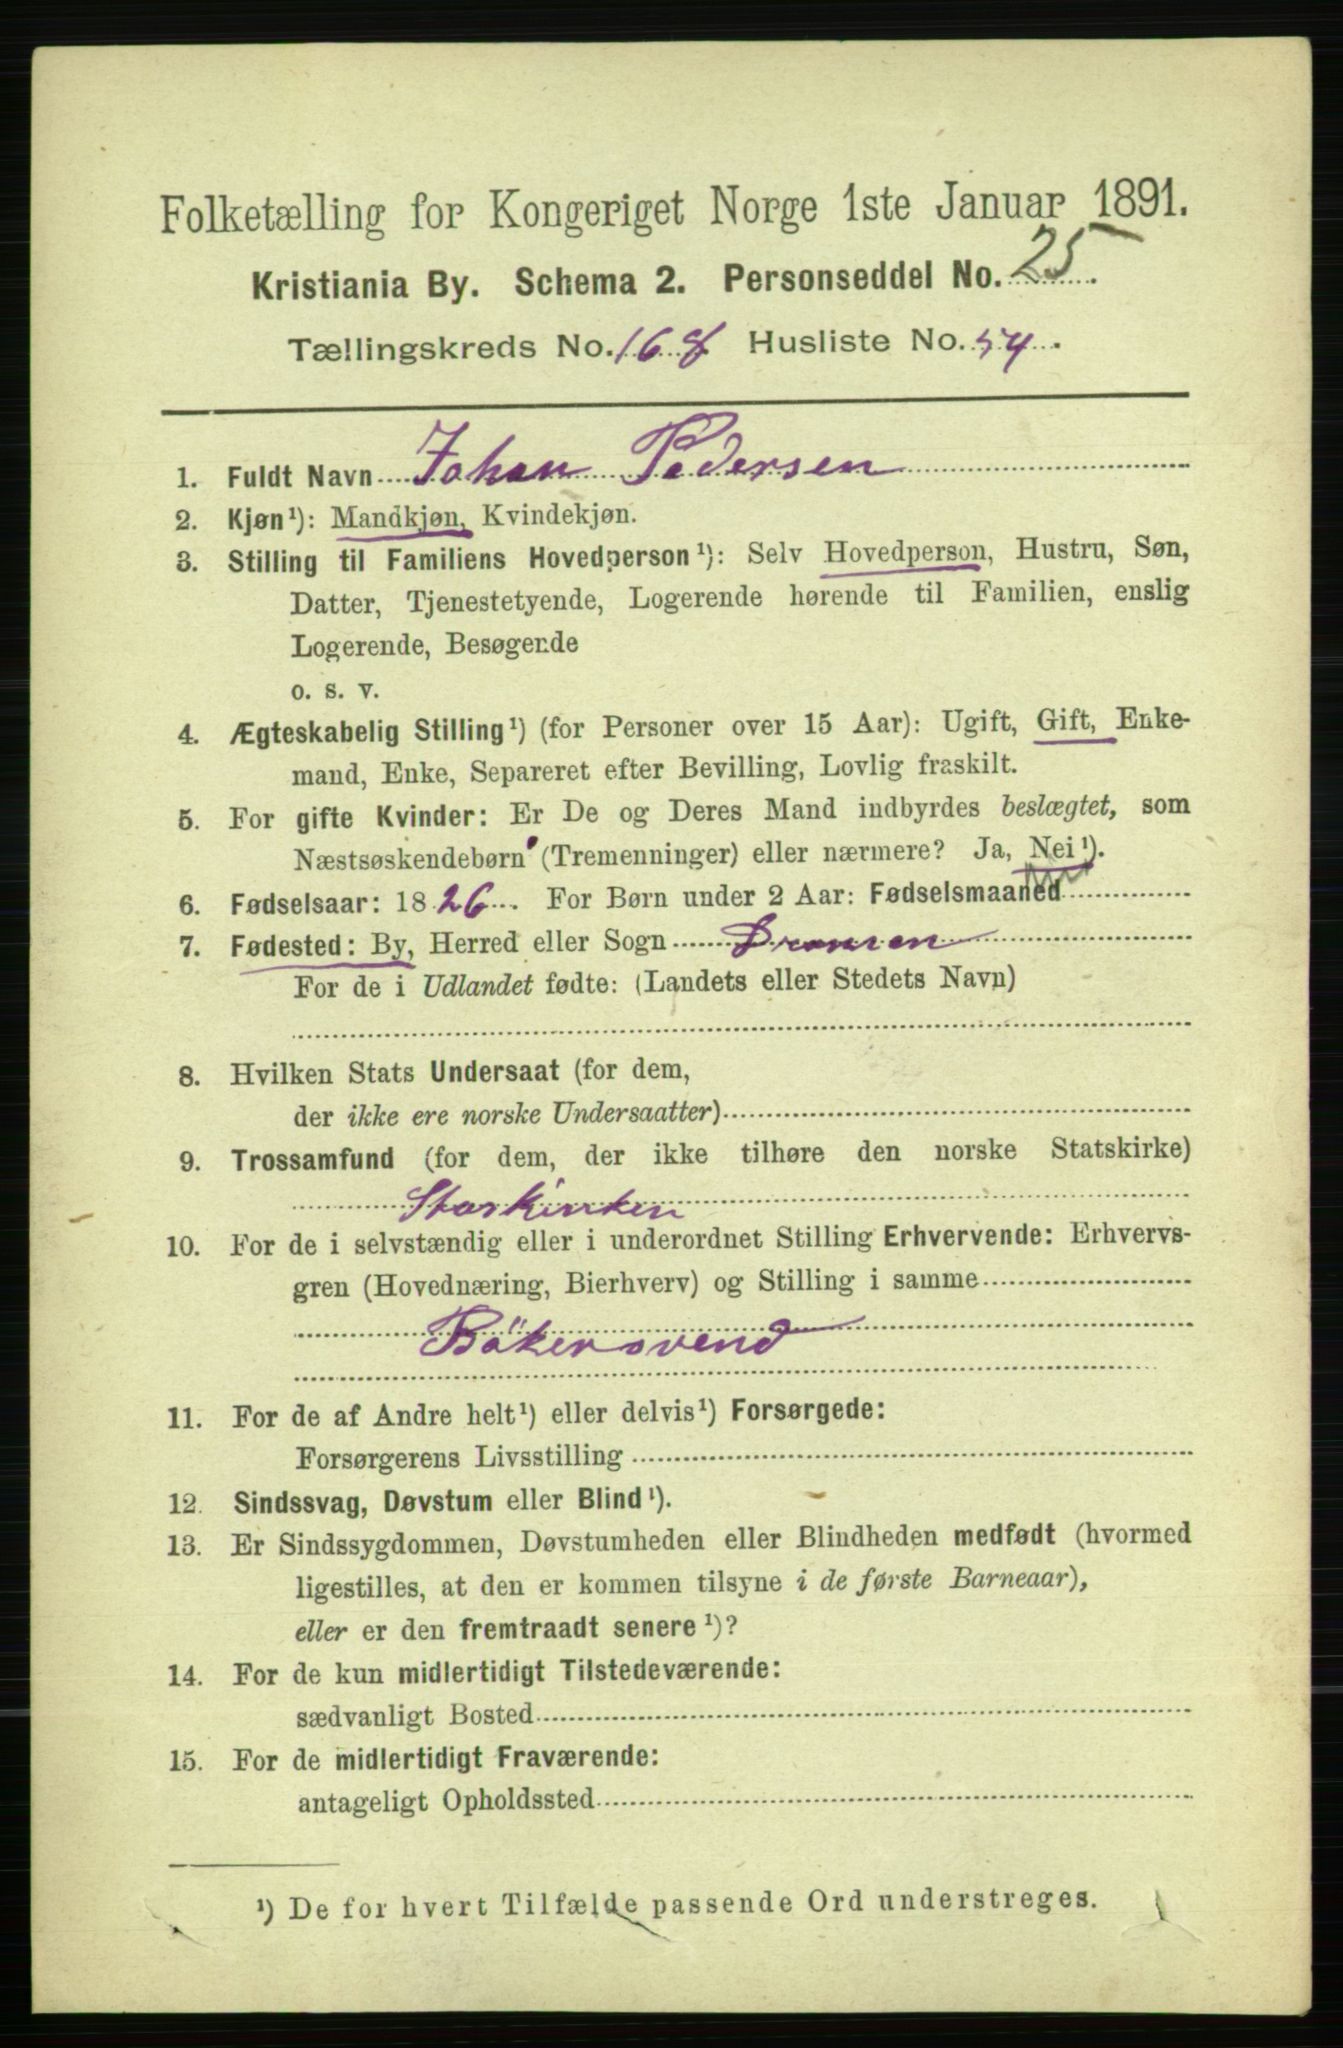 Folketælling for Kongeriget Norge 1ste Januar 1891.
Kristiania By. Schema 2. Personseddel No. 25
Tællingskreds No. 168 Husliste No. 54.
1. Fuldt Navn Johan Pedersen
2. Kjøn¹): Mandkjøn, Kvindekjøn.
3. Stilling til Familiens Hovedperson¹): Selv Hovedperson, Hustru, Søn,
Datter, Tjenestetyende, Logerende hørende til Familien, enslig
Logerende, Besøgende
o. s. v.
4. Ægteskabelig Stilling¹) (for Personer over 15 Aar): Ugift, Gift, Enke-
mand, Enke, Separeret efter Bevilling, Lovlig fraskilt.
5. For gifte Kvinder: Er De og Deres Mand indbyrdes beslægtet, som
Næstsøskendebørn (Tremenninger) eller nærmere? Ja, Nei¹).
6. Fødselsaar: 1826. For Børn under 2 Aar: Fødselsmaaned
7. Fødested: By, Herred eller Sogn Dramen
For de i Udlandet fødte: (Landets eller Stedets Navn)
8. Hvilken Stats Undersaat (for dem,
der ikke ere norske Undersaatter)
9. Trossamfund (for dem, der ikke tilhøre den norske Statskirke)
Starkirken
10. For de i selvstændig eller i underordnet Stilling Erhvervende: Erhvervs-
gren (Hovednæring, Bierhverv) og Stilling i samme
Bäkersvend
11. For de af Andre helt¹) eller delvis¹) Forsørgede:
Forsørgerens Livsstilling
12. Sindssvag, Døvstum eller Blind¹).
13. Er Sindssygdommen, Døvstumheden eller Blindheden medfødt (hvormed
ligestilles, at den er kommen tilsyne i de første Barneaar),
eller er den fremtraadt senere¹)?
14. For de kun midlertidigt Tilstedeværende:
sædvanligt Bosted
15. For de midlertidigt Fraværende:
antageligt Opholdssted
¹) De for hvert Tilfælde passende Ord understreges.